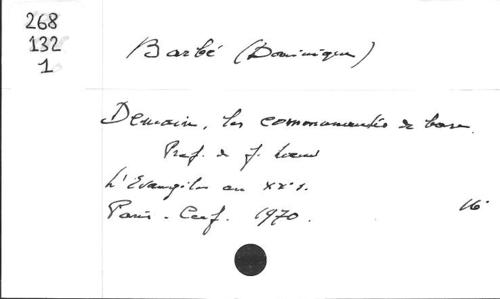 268
132
1
Barbé (Dominique)
Demain, les communautés de base.
Préf. de J. Loew
L'Evangile au XXe s.
Paris - Cerf. 1970. 16°